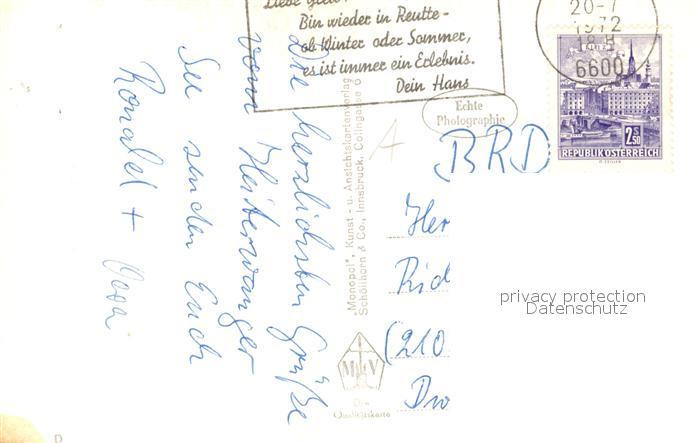 Bin wieder in Reutte -
ob Winter oder Sommer,
es ist immer ein Erlebnis.
Dein Hans
20-7
1972
18
6600
2 S 50
REPUBLIK ÖSTERREICH
Echte
Photographie
Die herzlichsten Grüße
vom Heiterwanger
See senden Euch
+
"Monopol", Kunst- u. Ansichtskartenverlag
Schöllhorn & Co., Innsbruck, Colingasse
M V
Die
Qualitätskarte
BRD
Her
Rid
(210
D
privacy protection
Datenschutz